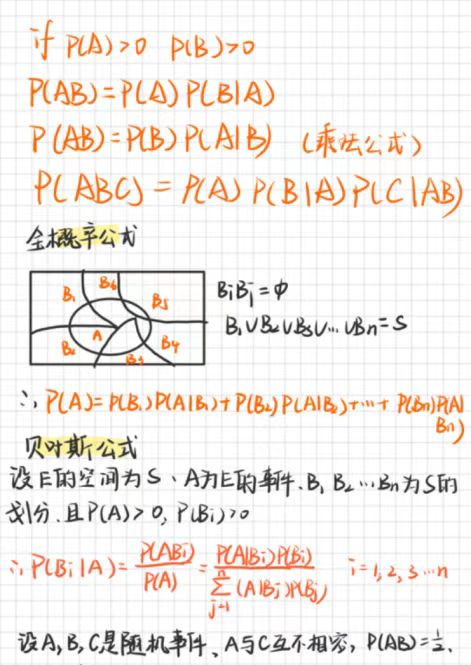 if P(A)>0 P(B)>0
P(AB)=P(A)P(B|A)
P(AB)=P(B)P(A|B) (乘法公式)
P(ABC)=P(A)P(B|A)P(C|AB)
全概率公式
B₁ B₆ B₅
BiBj=φ
A
B₁∪B₂∪B₃∪…∪Bn=S
B₂ B₃ B₄
∴P(A)=P(B₁)P(A|B₁)+P(B₂)P(A|B₂)+…+P(Bn)P(A|
Bn)
贝叶斯公式
设E的空间为S、A为E的事件.B₁ B₂…Bn为S的
划分.且P(A)>0,P(Bi)>0
∴P(Bi|A)=P(ABi)/P(A)=P(A|Bi)P(Bi)/∑ⁿⱼ₌₁(A|Bj)P(Bj) i=1,2,3…n
设A,B,C是随机事件、A与C互不相容,P(AB)=½.